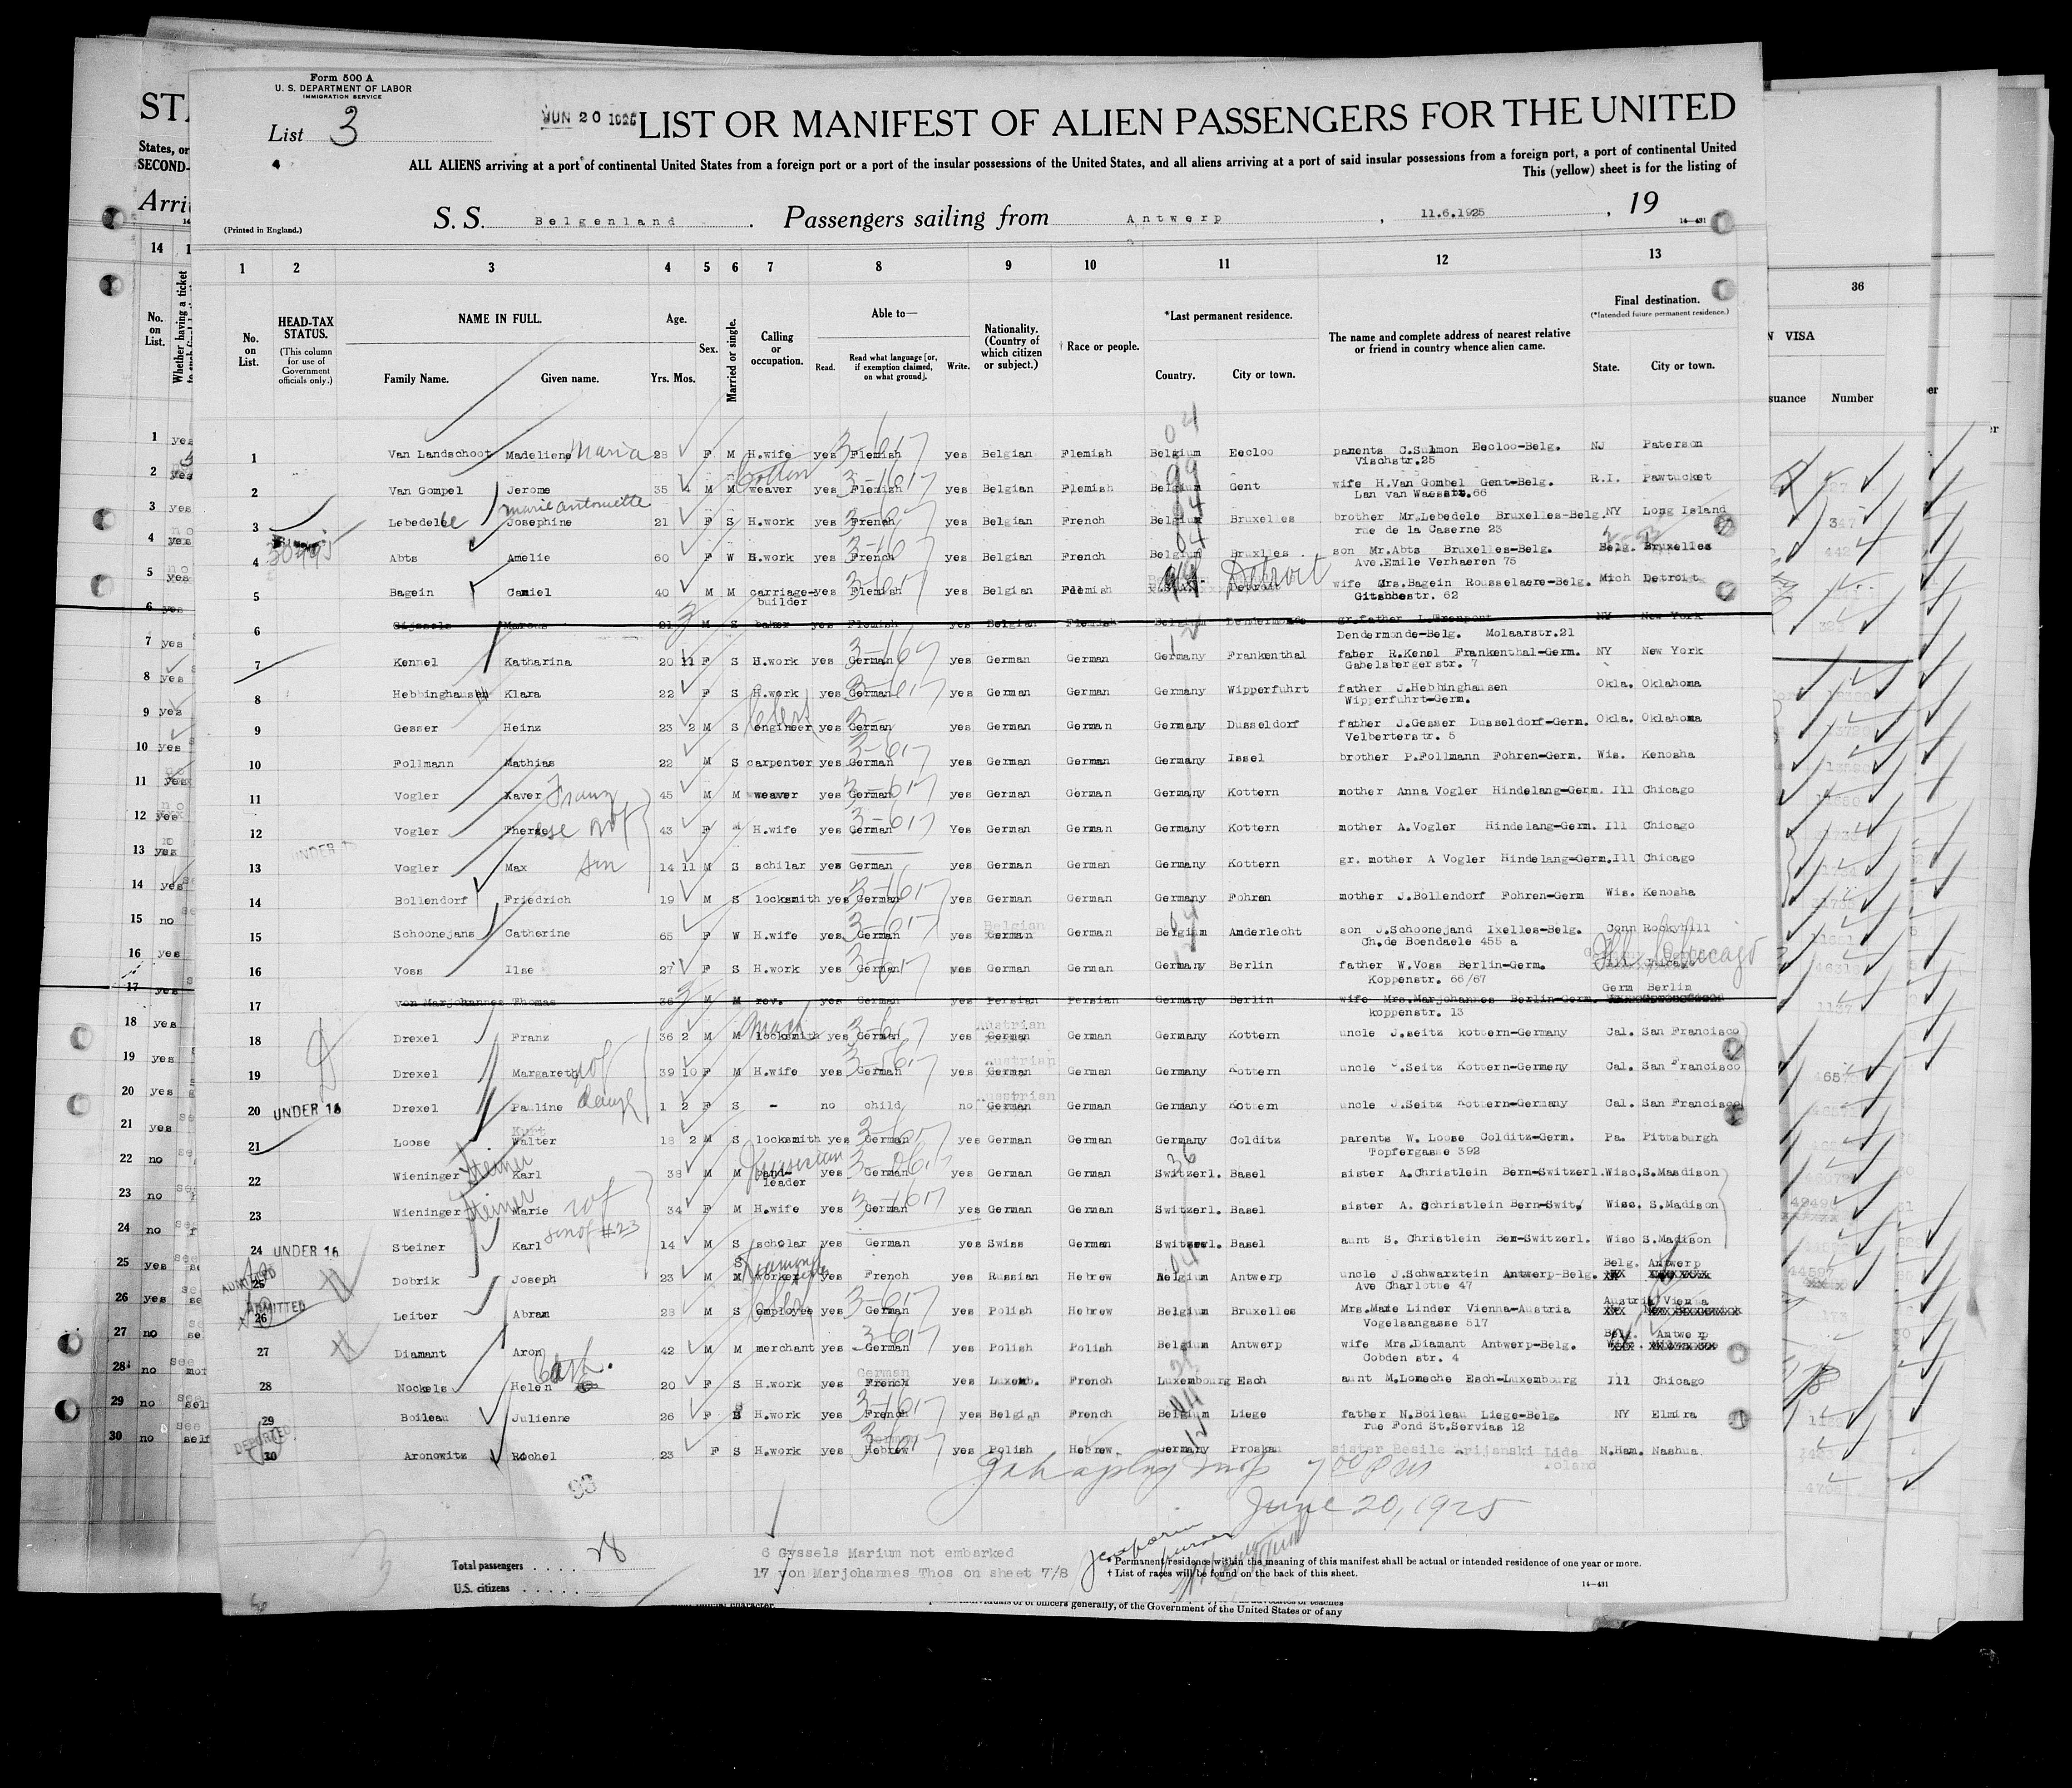 Form 500 A
U. S. DEPARTMENT OF LABOR
IMMIGRATION SERVICE
List 3
JUN 20 1925
LIST OR MANIFEST OF ALIEN PASSENGERS FOR THE UNITED
ALL ALIENS arriving at a port of continental United States from a foreign port or a port of the insular possessions of the United States, and all aliens arriving at a port of said insular possessions from a foreign port, a port of continental United
This (yellow) sheet is for the listing of
(Printed in England.)
S. S. Belgenland. Passengers sailing from Antwerp, 11.6.1925, 19
14-431
1 2 3 4 5 6 7 8 9 10 11 12 13
No. on List.
HEAD-TAX STATUS.
(This column for use of Government officials only.)
NAME IN FULL.
Family Name. Given name.
Age.
Yrs. Mos.
Sex.
Married or single.
Calling or occupation.
Able to—
Read. Read what language [or, if exemption claimed, on what ground]. Write.
Nationality. (Country of which citizen or subject.)
† Race or people.
*Last permanent residence.
Country. City or town.
The name and complete address of nearest relative or friend in country whence alien came.
Final destination.
(*Intended future permanent residence.)
State. City or town.
1 Van Landschoot Madeliene Maria 28 F M H.wife yes Flemish yes Belgian Flemish Belgium Eecloo parents C.Sulmon Eecloo-Belg. NJ Paterson
Vischstr.25
2 Van Gompel Jerome 35 M M cotton weaver yes Flemish yes Belgian Flemish Belgium Gent wife H.Van Gombel Gent-Belg. R.I. Pawtucket
Lan van Waesstr.66
marie antoinette
3 Lebedele Josephine 21 F S H.work yes French yes Belgian French Belgium Bruxelles brother Mr.Lebedele Bruxelles-Belg. NY Long Island
rue de la Caserne 23
4 Abts Amelie 60 F W H.work yes French yes Belgian French Belgium Bruxlles son Mr.Abts Bruxelles-Belg. Belg. Bruxelles
Ave.Emile Verhaeren 75
5 Bagein Camiel 40 M M carriage-builder yes Flemish yes Belgian Flemish Detroit wife Mrs.Bagein Rousselaere-Belg. Mich Detroit
Gitshbestr. 62
6 Gijssels Marcus 21 M S baker yes Flemish yes Belgian Flemish Belgium Dendermonde gr.father L.Trenpont NY New York
Dendermonde-Belg. Molaarstr.21
7 Kennel Katharina 20 11 F S H.work yes German yes German German Germany Frankenthal faher R.Kenel Frankenthal-Germ. NY New York
Gabelsbergerstr. 7
8 Hebbinghausen Klara 22 F S H.work yes German yes German German Germany Wipperfuhrt father J.Hebbinghausen Okla. Oklahoma
Wipperfuhrt-Germ.
9 Gesser Heinz 23 2 M S engineer yes German yes German German Germany Dusseldorf father J.Gesser Dusseldorf-Germ. Okla. Oklahoma
Velberterstr. 5
10 Follmann Mathias 22 M S carpenter yes German yes German German Germany Issel brother P.Follmann Fohren-Germ. Wis. Kenosha
11 Vogler Xaver Franz 45 M M weaver yes German yes German German Germany Kottern mother Anna Vogler Hindelang-Germ. Ill Chicago
12 Vogler Therese wof 43 F M H.wife yes German Yes German German Germany Kottern mother A.Vogler Hindelang-Germ. Ill Chicago
13 Vogler Max son 14 11 M S schilar yes German yes German German Germany Kottern gr. mother A Vogler Hindelang-Germ. Ill Chicago
14 Bollendorf Friedrich 19 M S locksmith yes German yes German German Germany Fohren mother J.Bollendorf Fohren-Germ Wis. Kenosha
15 Schoonejans Catherine 65 F W H.wife yes German yes Belgian German German Belgium Anderlecht son J.Schoonejand Ixelles-Belg. Conn Rockyhill
Ch.de Boendaele 455 a
16 Voss Ilse 27 F S H.work yes German yes German German Germany Berlin father W.Voss Berlin-Germ. Ill. Chicago
Koppenstr. 66/67
Germ Berlin
17 von Marjohannes Thomas 38 M M rev. yes German yes Persian Persian Germany Berlin wife Mrs.Marjohannes Berlin-Germ.
koppenstr. 13
18 Drexel Franz 36 2 M M locksmith yes German yes Austrian German German Germany Kottern uncle J.seitz kottern-Germany Cal. San Francisco
19 Drexel Margareth wof 39 10 F M H.wife yes German yes Austrian German German Germany Kottern uncle J.Seitz Kottern-Germeny Cal. San Francisco
20 UNDER 16 Drexel Pauline daugh 1 2 F S - no child no Austrian German German Germany Kottern uncle J.Seitz Kottern-Germany Cal. San Francisco
21 Loose Kurt Walter 18 2 M S locksmith yes German yes German German Germany Colditz parents W. Loose Colditz-Germ. Pa. Pittsburgh
Topfergasse 392
22 Wieninger Steiner Karl 38 M M musician band-leader yes German yes German German Switzerl. Basel sister A.Christlein Bern-Switzerl. Wisc. S.Masdison
23 Wieninger Steiner Marie wof 34 F M H.wife yes German yes German German Switzerl. Basel sister A. Cchristlein Bern-Swit. Wisc. S.Madison
24 UNDER 16 Steiner Karl son of #23 14 M S scholar yes German yes Swiss German Switzerl. Basel aunt S. Christlein Ben-Switzerl. Wisc S.Madison
25 ADMITTED Dobrik Joseph 23 M S diamond worker yes French yes Russian Hebrew Belgium Antwerp uncle J.Schwarztein Antwerp-Belg. Belg. Antwerp
Ave Charlotte 47
26 ADMITTED Leiter Abram 28 M S employee yes German yes Polish Hebrew Belgium Bruxelles Mrs.Marie Linder Vienna-Austria Austria Vienna
Vogelsangasse 517
27 Diamant Aron 42 M M merchant yes German yes Polish Polish Belgium Antwerp wife Mrs.Diamant Antwerp-Belg. Belg. Antwerp
Cobden str. 4
28 Nockels Helen Cath. 20 F S H.work yes German French yes Luxemb. French Luxembourg Esch aunt M.Lomeche Esch-Luxembourg Ill Chicago
29 Boileau Julienne 26 F S H.work yes French yes Belgian French Belgium Liege father N.Boileau Liege-Belg. NY Elmira
rue Fond St.Servias 12
30 DEPORTED Aronowitz Rochel 23 F S H.work yes Hebrew yes Polish Hebrew Germany Proskau sister Besile Arijanski Lida Poland N.Ham. Nashua
93
700 PM
June 20, 1925
Total passengers . . . . 28
U.S. citizens . . . . . .
6 Gyssels Marium not embarked
17 von Marjohannes Thos on sheet 7/8
* Permanent residence within the meaning of this manifest shall be actual or intended residence of one year or more.
† List of races will be found on the back of this sheet.
14-431
of officers generally, of the Government of the United States or of any